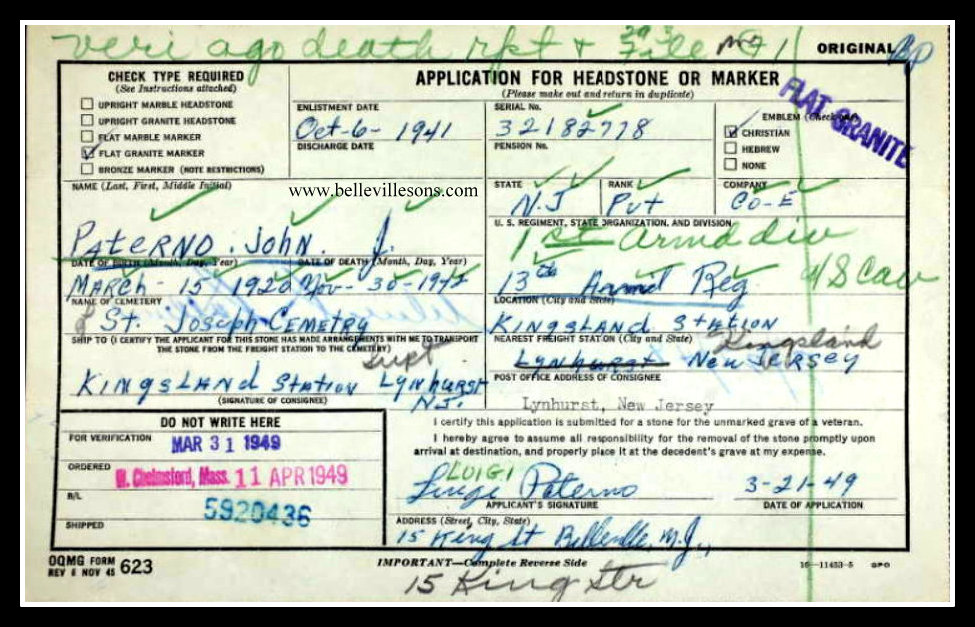 veri ago death rpt + File
ORIGINAL
CHECK TYPE REQUIRED
(See Instructions attached)
UPRIGHT MARBLE HEADSTONE
UPRIGHT GRANITE HEADSTONE
FLAT MARBLE MARKER
FLAT GRANITE MARKER
BRONZE MARKER (NOTE RESTRICTIONS)
APPLICATION FOR HEADSTONE OR MARKER
(Please make out and return in duplicate)
ENLISTMENT DATE
Oct-6- 1941
DISCHARGE DATE
SERIAL No.
32182778
PENSION No.
EMBLEM (Check one)
CHRISTIAN
HEBREW
NONE
FLAT GRANITE
www.bellevillesons.com
NAME (Last, First, Middle Initial)
PATERNO. JOHN. J.
STATE
N.J
RANK
Pvt
COMPANY
CO-E
U. S. REGIMENT, STATE ORGANIZATION, AND DIVISION
1st Armd div
13th Armd Reg
U S Cav
DATE OF BIRTH (Month, Day, Year)
MARCH - 15 1920
DATE OF DEATH (Month, Day, Year)
Nov- 30-1942
NAME OF CEMETERY
St. Joseph CEMETRY
LOCATION (City and State)
KINGSLAND STATION
SHIP TO (I CERTIFY THE APPLICANT FOR THIS STONE HAS MADE ARRANGEMENTS WITH ME TO TRANSPORT
THE STONE FROM THE FREIGHT STATION TO THE CEMETERY)
Supt.
KINGSLAND STATION LYNHURST
N.J.
(SIGNATURE OF CONSIGNEE)
NEAREST FREIGHT STATION (City and State)
Kingsland
Lynhurst New JERSEY
POST OFFICE ADDRESS OF CONSIGNEE
Lynhurst, New Jersey
DO NOT WRITE HERE
FOR VERIFICATION
MAR 31 1949
ORDERED
W. Chelmsford, Mass. 11 APR 1949
B/L
5920436
SHIPPED
I certify this application is submitted for a stone for the unmarked grave of a veteran.
I hereby agree to assume all responsibility for the removal of the stone promptly upon
arrival at destination, and properly place it at the decedent's grave at my expense.
LUIGI
Luigi Paterno
APPLICANT'S SIGNATURE
3-21-49
DATE OF APPLICATION
ADDRESS (Street, City, State)
15 King St Belleville, N.J.,
OQMG FORM
REV 6 NOV 45 623
IMPORTANT—Complete Reverse Side
16—11453-5 GPO
15 King Str